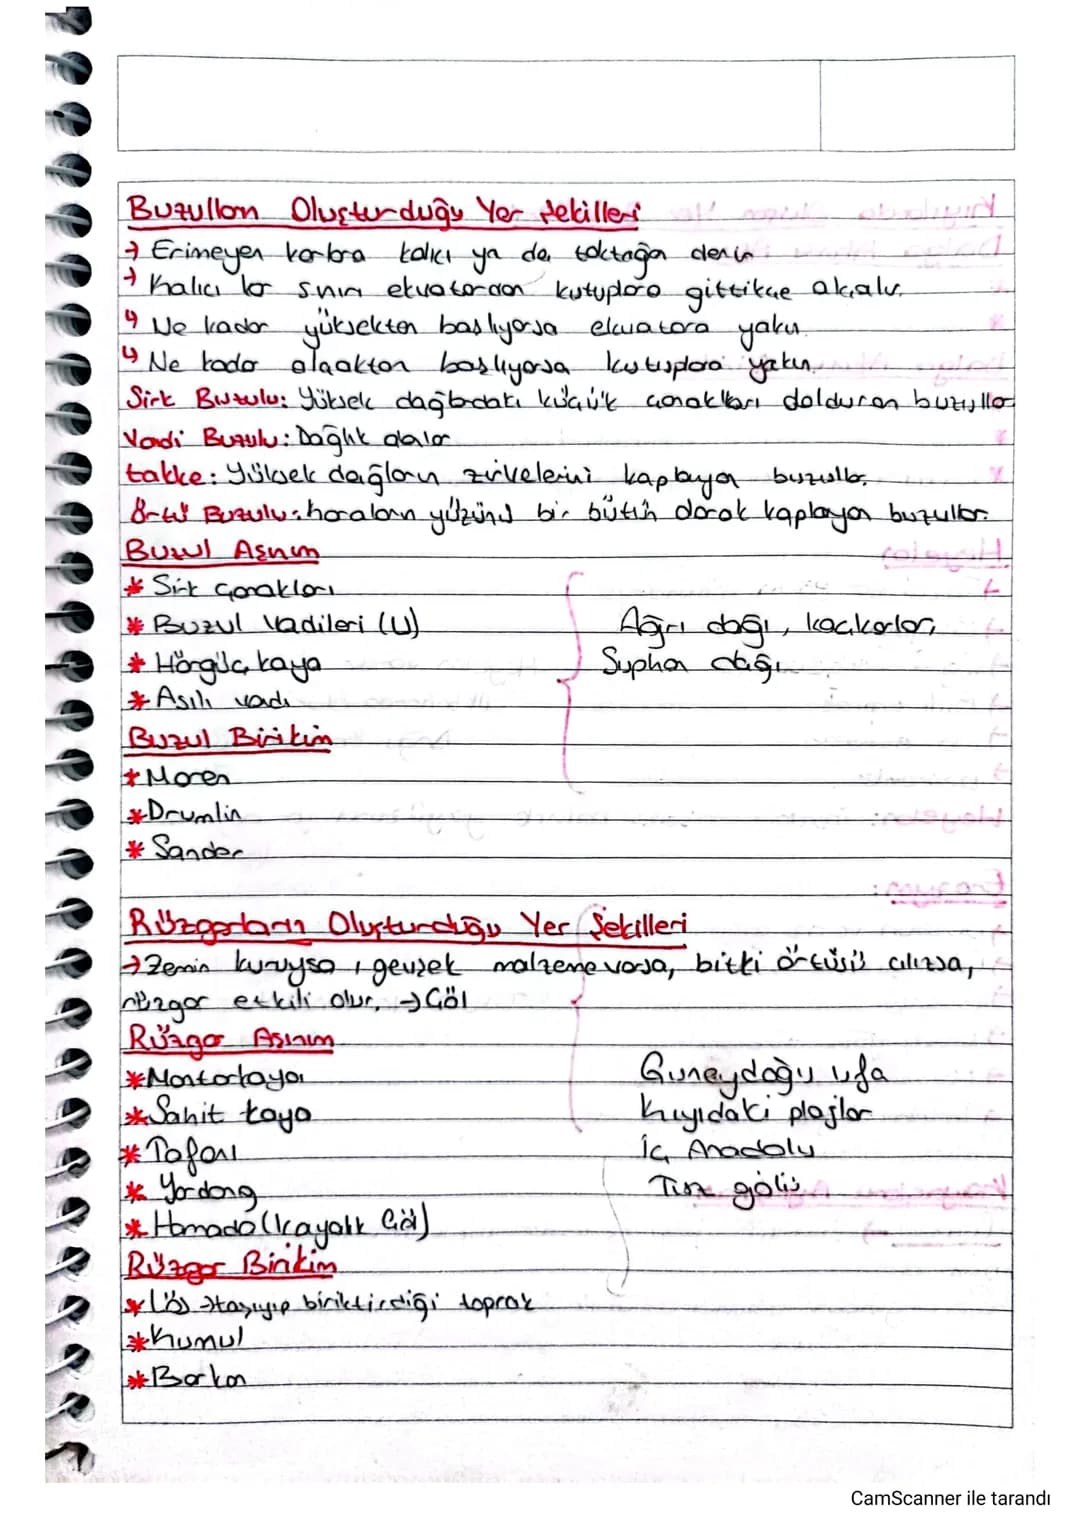 Buzulların Oluşturduğu Yer Şekilleri
→ Erimeyen karlara kalıcı ya da toktağan denir
→ Kalıcı kar sınırı ekvatordan kutuplara gittikçe alçalır.
↳ Ne kadar yüksekten başlıyorsa ekvatora yakın
↳ Ne kadar alçaktan başlıyorsa kutuplara yakın.
Sirk Buzulu: Yüksek dağlardaki küçük çanakları dolduran buzullar
Vadi Buzulu: Dağlık alalar
takke: Yüksek dağların zirvelerini kaplayan buzullar.
Örtü Buzulu: karaların yüzünü bir bütün olarak kaplayan buzullar.
Buzul Aşınım
* Sirk çanakları
* Buzul Vadileri (U)
* Hörgüç kaya
* Asılı vadi
Ağrı dağı, kaçkarlar,
Suphan dağı
Buzul Birikim
* Moren
* Drumlin
* Sander
Rüzgarların Oluşturduğu Yer Şekilleri
→ Zemin kuruysa, gevşek malzeme varsa, bitki örtüsü cılızsa,
rüzgar etkili olur. → Çöl
Rüzgar Aşınım
* Mantarkaya
* Şahit kaya
* Tafoni
* Yardang
* Hamada (kayalık Çöl)
Guneydoğu Urfa
Kıyıdaki plajlar
İç Anadolu
Tuz gölü
Rüzgar Birikim
* Lös → taşıyıp biriktirdiği toprak
* Kumul
* Barkan
CamScanner ile tarandı